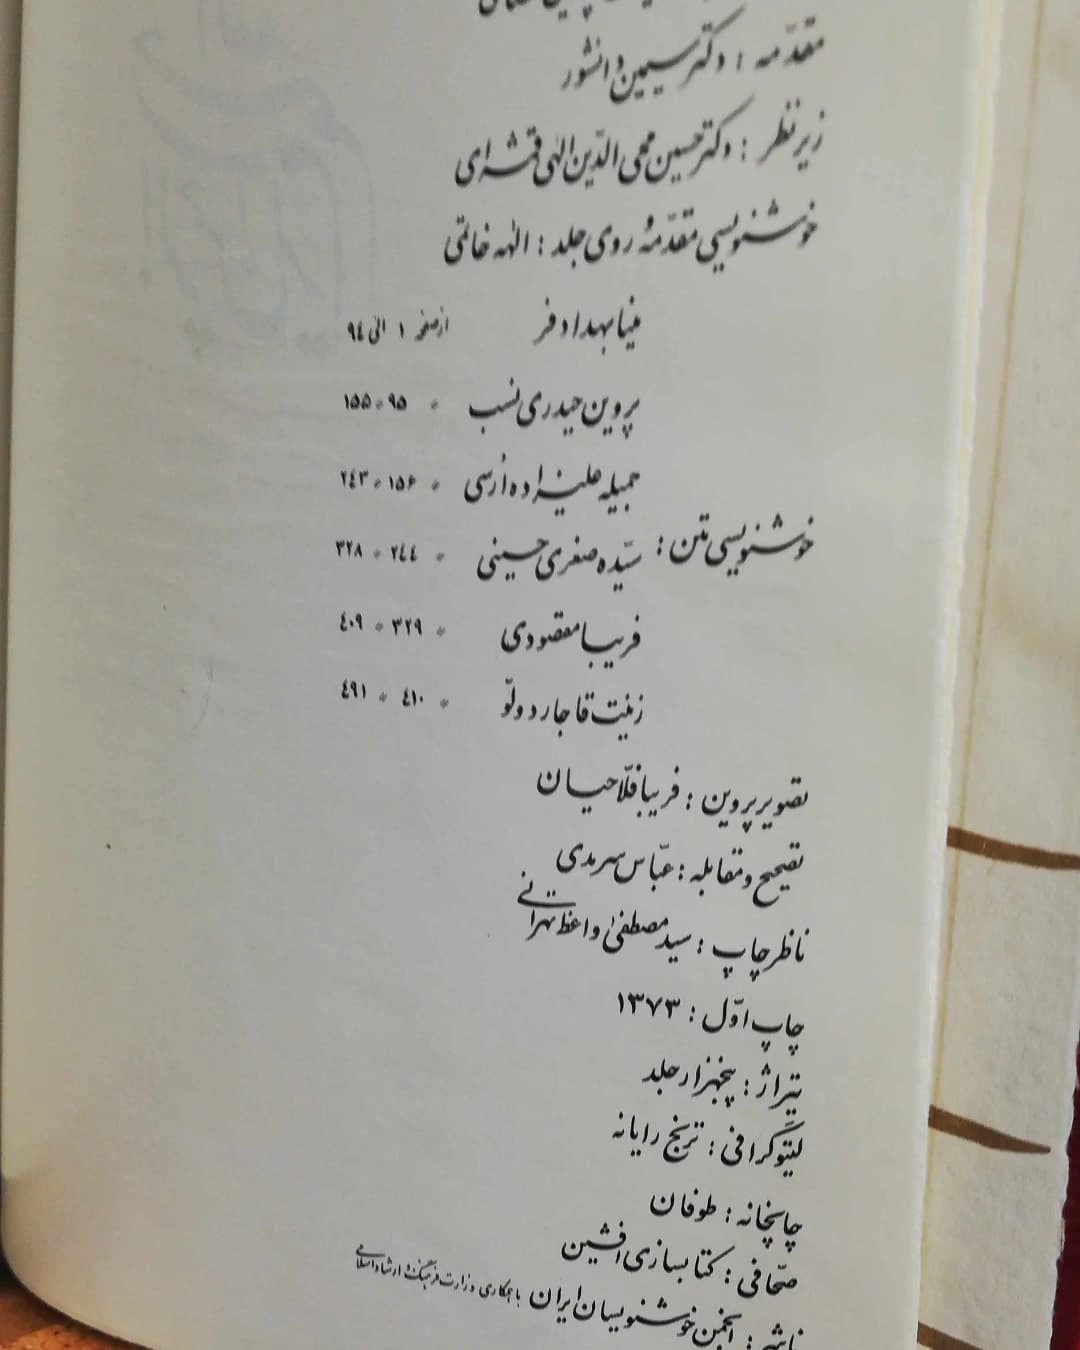 مقدّمه : دکتر سیمین دانشور
زیر نظر : دکتر حسین محی الدّین الهی قمشه‌ای
خوشنویسی مقدّمه و روی جلد : الهه خاتمی
مینا بهداد فر از صفحه ۱ الی ۹٤
پروین حیدری نسب " ۹۵ " ۱۵۵
جمیله علیزاده اُرسی " ۱۵۶ " ۲٤۳
خوشنویسی متن : سیّده صغری حسینی " ۲٤٤ " ۳۲۸
فریبا مقصودی " ۳۲۹ " ٤۰۹
زینت قاجار دولّو " ٤۱۰ " ٤۹۱
تصویر پروین : فریبا فلّاحیان
تصحیح و مقابله : عبّاس سرمدی
ناظر چاپ : سید مصطفیٰ واعظ تهرانی
چاپ اوّل : ۱۳۷۳
تیراژ : پنجهزار جلد
لیتوگرافی : ترنج رایانه
چاپخانه : طوفان
صحّافی : کتابسازی افشین
ناشر : انجمن خوشنویسان ایران با همکاری وزارت فرهنگ و ارشاد اسلامی